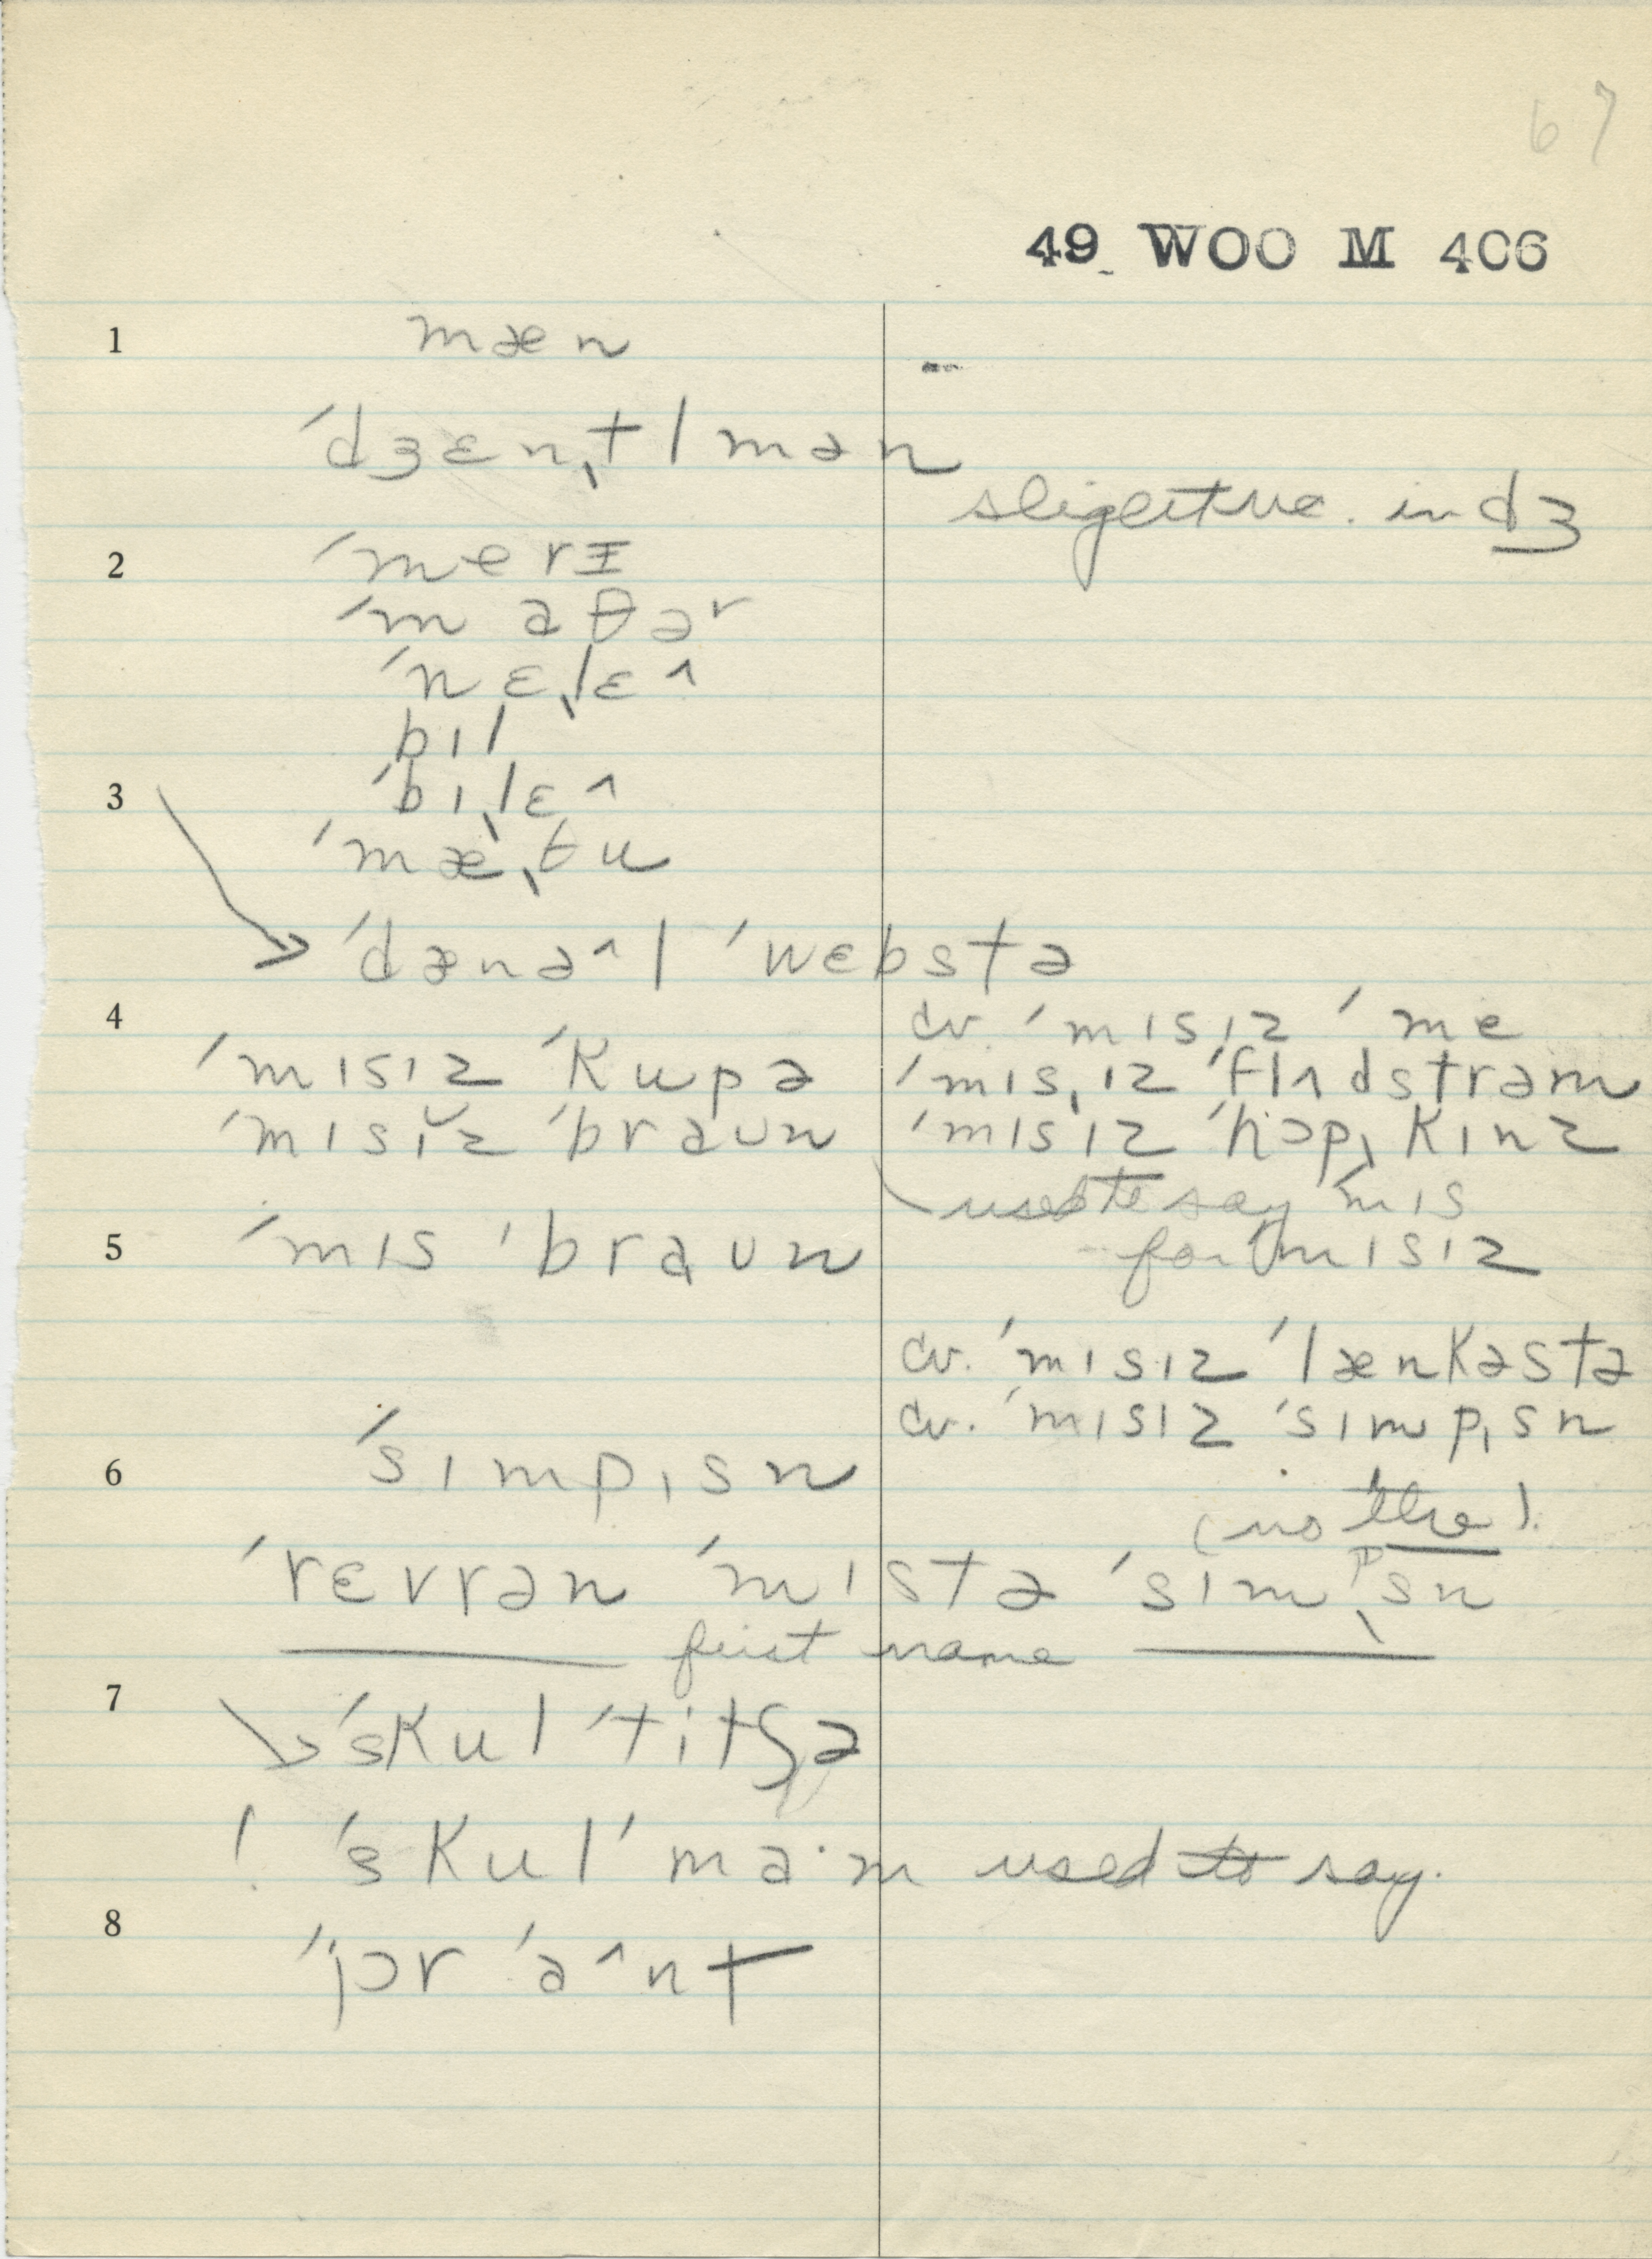 67
49 WOO M 406
1 mæn
ˈdʒɛnˌtlmən
slight vc. in dʒ
2 ˈmerɪ
ˈmaθəʳ
ˈnɛˌlɛ^
bɪl
3 ˈbɪˌlɛ^
ˈmæˌθu
→ ˈdænə^l ˈwɛbstə
4 cv. ˈmɪsˌɪz ˈme
ˈmɪsɪz ˈkupə ˈmɪsˌɪz ˈflʌdstrəm
ˈmɪsɪ̆z ˈbraʊn ˈmɪsˌɪz ˈhɔpˌkɪnz
used to say mɪs
5 ˈmɪs ˈbraʊn for ˈmɪsɪz
cv. ˈmɪsɪz ˈlænkəstə
cv. ˈmɪsɪz ˈsɪmpˌsn
6 ˈsɪmpˌsn
(no the).
ˈrɛvrən ˈmɪstə ˈsɪmᵖˌsn
first name
7 → ˈskul ˈtitʃə
! ˈskul ˈma·m used to say.
8 ˈjɔr ˈa^nt